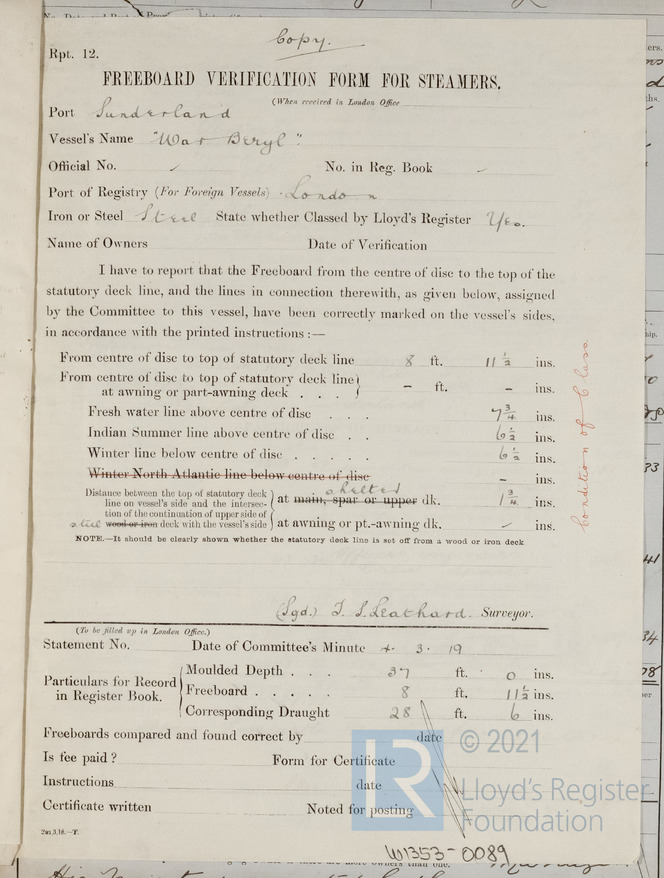 Copy.
Rpt. 12.
FREEBOARD VERIFICATION FORM FOR STEAMERS.
(When received in London Office
Port Sunderland
Vessel's Name "War Beryl".
Official No. ✓ No. in Reg. Book ✓
Port of Registry (For Foreign Vessels) London
Iron or Steel Steel State whether Classed by Lloyd's Register Yes.
Name of Owners Date of Verification
I have to report that the Freeboard from the centre of disc to the top of the
statutory deck line, and the lines in connection therewith, as given below, assigned
by the Committee to this vessel, have been correctly marked on the vessel's sides,
in accordance with the printed instructions :—
From centre of disc to top of statutory deck line 8 ft. 11 1/2 ins.
From centre of disc to top of statutory deck line
at awning or part-awning deck . . . – ft. – ins.
Fresh water line above centre of disc . . . 7 3/4 ins.
Indian Summer line above centre of disc . . 6 1/2 ins.
Winter line below centre of disc . . . . . 6 1/2 ins.
Winter North Atlantic line below centre of disc – ins.
Distance between the top of statutory deck
line on vessel's side and the intersec-
tion of the continuation of upper side of
steel wood or iron deck with the vessel's side
shelter
at main, spar or upper dk. 1 3/4 ins.
at awning or pt.-awning dk. ✓ ins.
NOTE.—It should be clearly shown whether the statutory deck line is set off from a wood or iron deck
Condition of Class
(Sgd.) T. S. Leathard. Surveyor.
(To be filled up in London Office.)
Statement No. Date of Committee's Minute 4. 3. 19
Particulars for Record
in Register Book.
Moulded Depth . . . 37 ft. 0 ins.
Freeboard . . . . . 8 ft. 11 1/2 ins.
Corresponding Draught 28 ft. 6 ins.
Freeboards compared and found correct by date
Is fee paid ? Form for Certificate
Instructions date
Certificate written Noted for posting
2m.3.18.—T.
© 2021
LR
Lloyd's Register
Foundation
W1353-0089